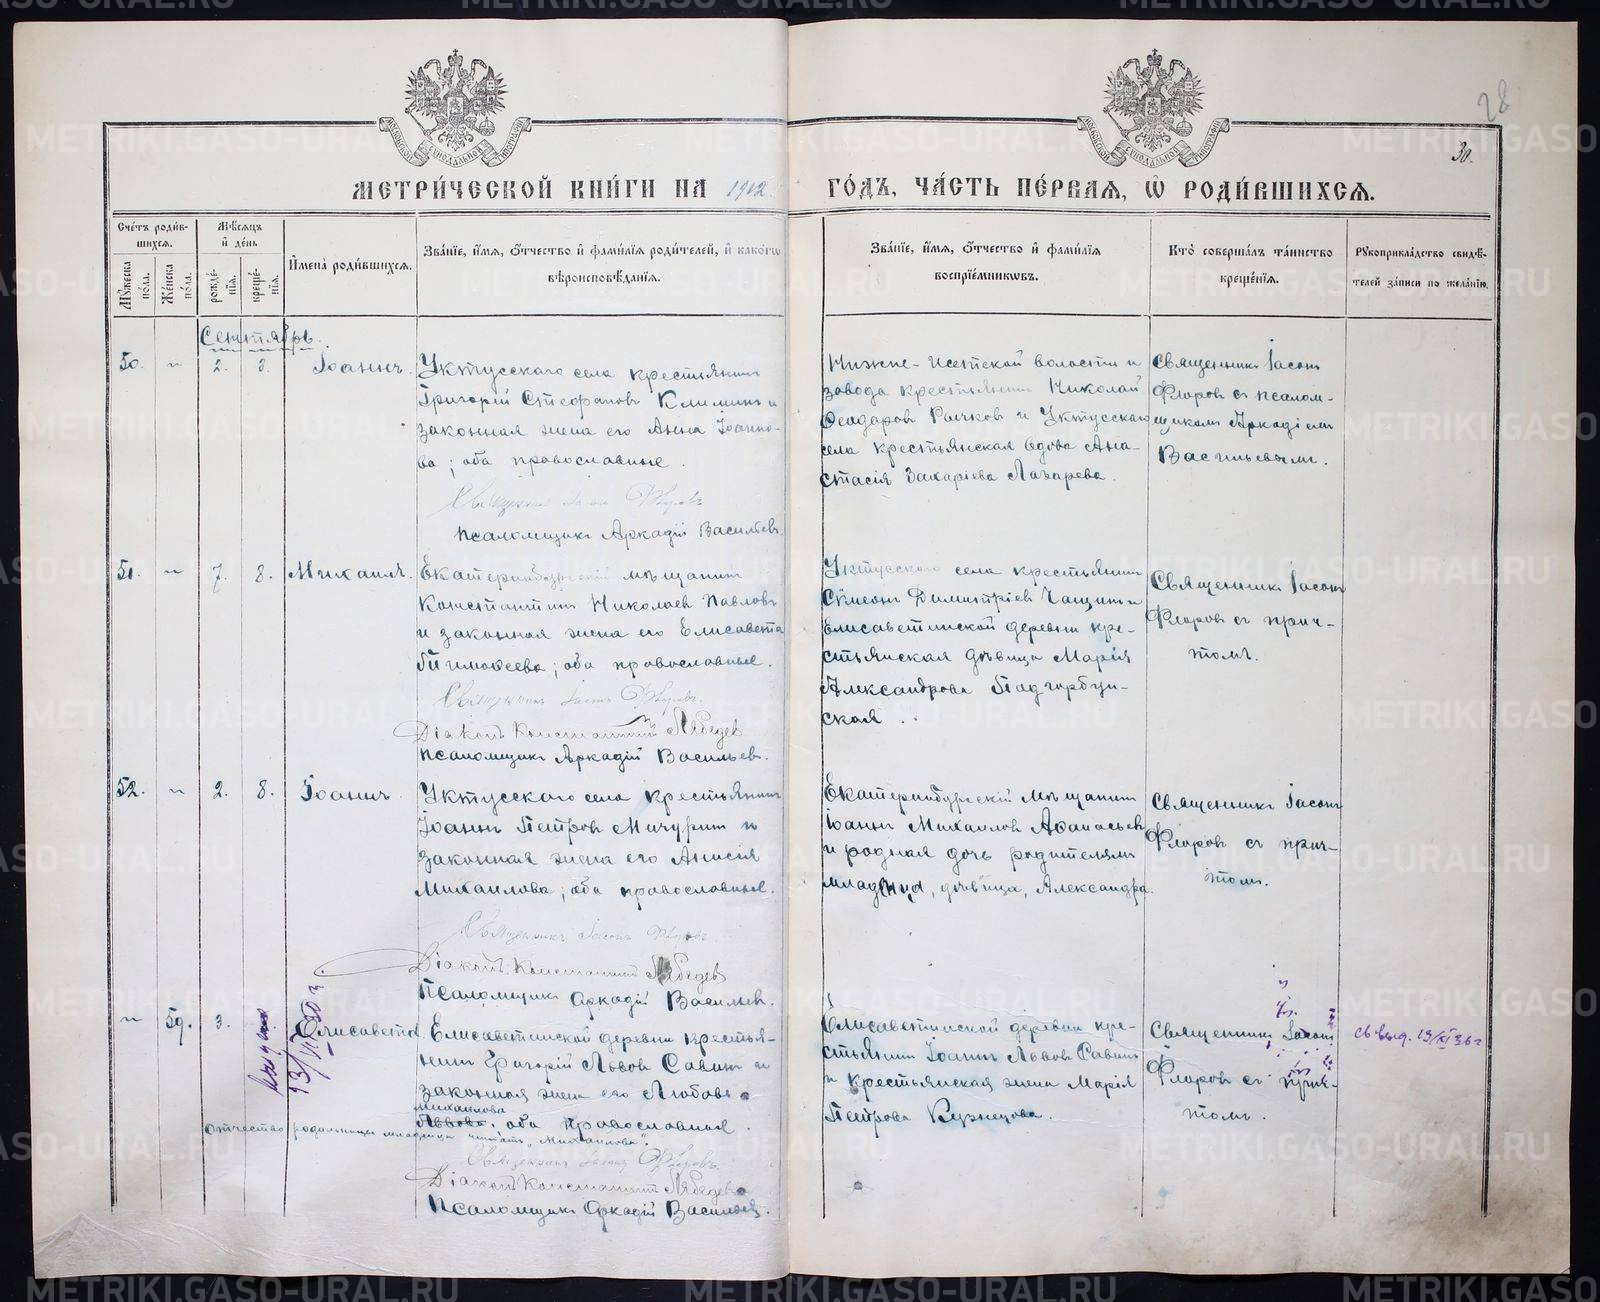 28
30.
МЕТРИ́ЧЕСКОЙ КНИ́ГИ НА 1912 ГО́ДЪ, ЧА́СТЬ ПЕ́РВАЯ, Ѡ҆ РОДИ́ВШИХСЯ.
Сче́тъ роди́в-
шихся.
Мужеска по́ла.
Же́нска по́ла.
Мѣ́сяцъ
и҆ де́нь
рожде́-
нїѧ.
креще́-
нїѧ.
И҆мена̀ роди́вшихсѧ.
Зва́нїе, и҆́мѧ, ѻ҆́тчество и҆ фами́лїѧ роди́телей, и҆ како́гѡ
вѣроисповѣ́данїѧ.
Зва́нїе, и҆́мѧ, ѻ҆́тчество и҆ фами́лїѧ
воспрїе́мникѡвъ.
Кто̀ соверша́лъ та́инство
креще́нїѧ.
Рꙋкоприкла́дство свидѣ́-
телей за́писи по жела́нїю.
Сентябрь.
50. " 2. 3. Іоаннъ.
Уктусскаго села крестьянинъ
Григорій Стефановъ Климинъ и
законная жена его Анна Іоанно-
ва; оба православные.
Священникъ Іасонъ Флоровъ
Псаломщикъ Аркадій Васильевъ.
Нижне-Исетской волости и
завода крестьянинъ Николай
Ѳеодоровъ Рычковъ и Уктусскаго
села крестьянская вдова Ана-
стасія Захаріева Лазарева.
Священникъ Іасонъ
Флоровъ съ псалом-
щикомъ Аркадіемъ
Васильевымъ.
51. " 7. 8. Михаилъ.
Екатеринбургскій мѣщанинъ
Константинъ Николаевъ Павловъ
и законная жена его Елисавета
Тимоѳеева; оба православные.
Священникъ Іасонъ Флоровъ.
Діаконъ Константинъ Лебедевъ
Псаломщикъ Аркадій Васильевъ.
Уктусскаго села крестьянинъ
Симеонъ Димитріевъ Чащинъ и
Елисаветинской деревни кре-
стьянская дѣвица Марія
Александрова Подгорбун-
ская.
Священникъ Іасонъ
Флоровъ съ прич-
томъ.
52. " 2. 8. Іоаннъ.
Уктусскаго села крестьянинъ
Іоаннъ Петровъ Мичуринъ и
законная жена его Анисія
Михаилова; оба православные.
Священникъ Іасонъ Флоровъ.
Діаконъ Константинъ Лебедевъ
Псаломщикъ Аркадій Васильевъ.
Екатеринбургскій мѣщанинъ
Іоаннъ Михаиловъ Аѳанасьевъ
и родная дочь родителямъ
младенца, дѣвица, Александра.
Священникъ Іасонъ
Флоровъ съ прич-
томъ.
" 59. 3. Елисавета
Елисаветинской деревни крестья-
нинъ Григорій Львовъ Савинъ и
законная жена его Любовь
Михаилова
Львова; оба православные.
Отчество родильницы младенца читать "Михаилова".
Священникъ Іасонъ Флоровъ.
Діаконъ Константинъ Лебедевъ
Псаломщикъ Аркадій Васильевъ.
Елисаветинской деревни кре-
стьянинъ Іоаннъ Львовъ Савинъ
и крестьянская жена Марія
Петрова Кузнецова.
Священникъ Іасонъ
Флоровъ съ прич-
томъ.
св выд. 19/XI 36 г
METRIKI.GASO-URAL.RU